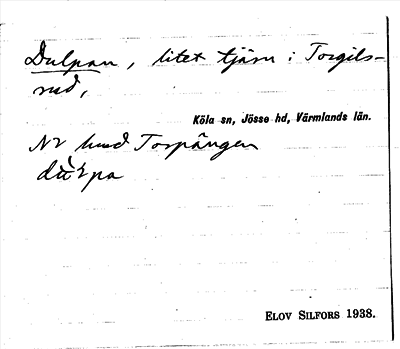 Dulpan, litet tjärn i Torgils-
rud,
Köla sn, Jösse hd, Värmlands län.
NV Torpängen
ELOV SILFORS 1938.